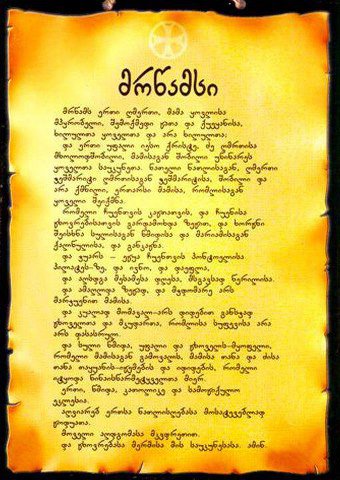 მრწამსი
მრწამს ერთი ღმერთი, მამა ყოვლისა
მპყრობელი, შემოქმედი ცათა და ქუეყანისა,
ხილულთა ყოველთა და არა ხილულთა;
და ერთი უფალი იესო ქრისტე, ძე ღმრთისა
მხოლოდშობილი, მამისაგან შობილი უწინარეს
ყოველთა საუკუნეთა. ნათელი ნათლისაგან, ღმერთი
ჭეშმარიტი ღმრთისაგან ჭეშმარიტისა, შობილი და
არა ქმნილი, ერთარსი მამისა, რომლისაგან
ყოველი შეიქმნა.
რომელი ჩუენთვის კაცთათვის, და ჩუენისა
ცხოვრებისათვის გარდამოხდა ზეცით, და ხორცნი
შეისხნა სულისაგან წმიდისა და მარიამისაგან
ქალწულისა, და განკაცნა.
და ჯუარს – ეცუა ჩუენთვის პონტოელისა
პილატეს–ზე, და ივნო, და დაეფლა,
და აღსდგა მესამესა დღესა, მსგავსად წერილისა.
და ამაღლდა ზეცად, და მჯდომარე არს
მარჯუენით მამისა.
და კუალად მომავალ–არს დიდებით განსჯად
ცხოველთა და მკუდართა, რომლისა სუფევისა არა
არს დასასრულ.
და სული წმიდა, უფალი და ცხოველს–მყოფელი,
რომელი მამისაგან გამოვალს, მამისა თანა და ძისა
თანა თაყუანის–იცემების და იდიდების, რომელი
იტყოდა წინაისწარმეტყუელთა მიერ.
ერთი, წმიდა, კათოლიკე და სამოციქულო
ეკლესია.
აღვიარებ ერთსა ნათლისღებასა მოსატევებელად
ცოდუათა.
მოველი აღდგომასა მკვდრეთით.
და ცხოვრებასა მერმისა მის საუკუნესასა. ამინ.